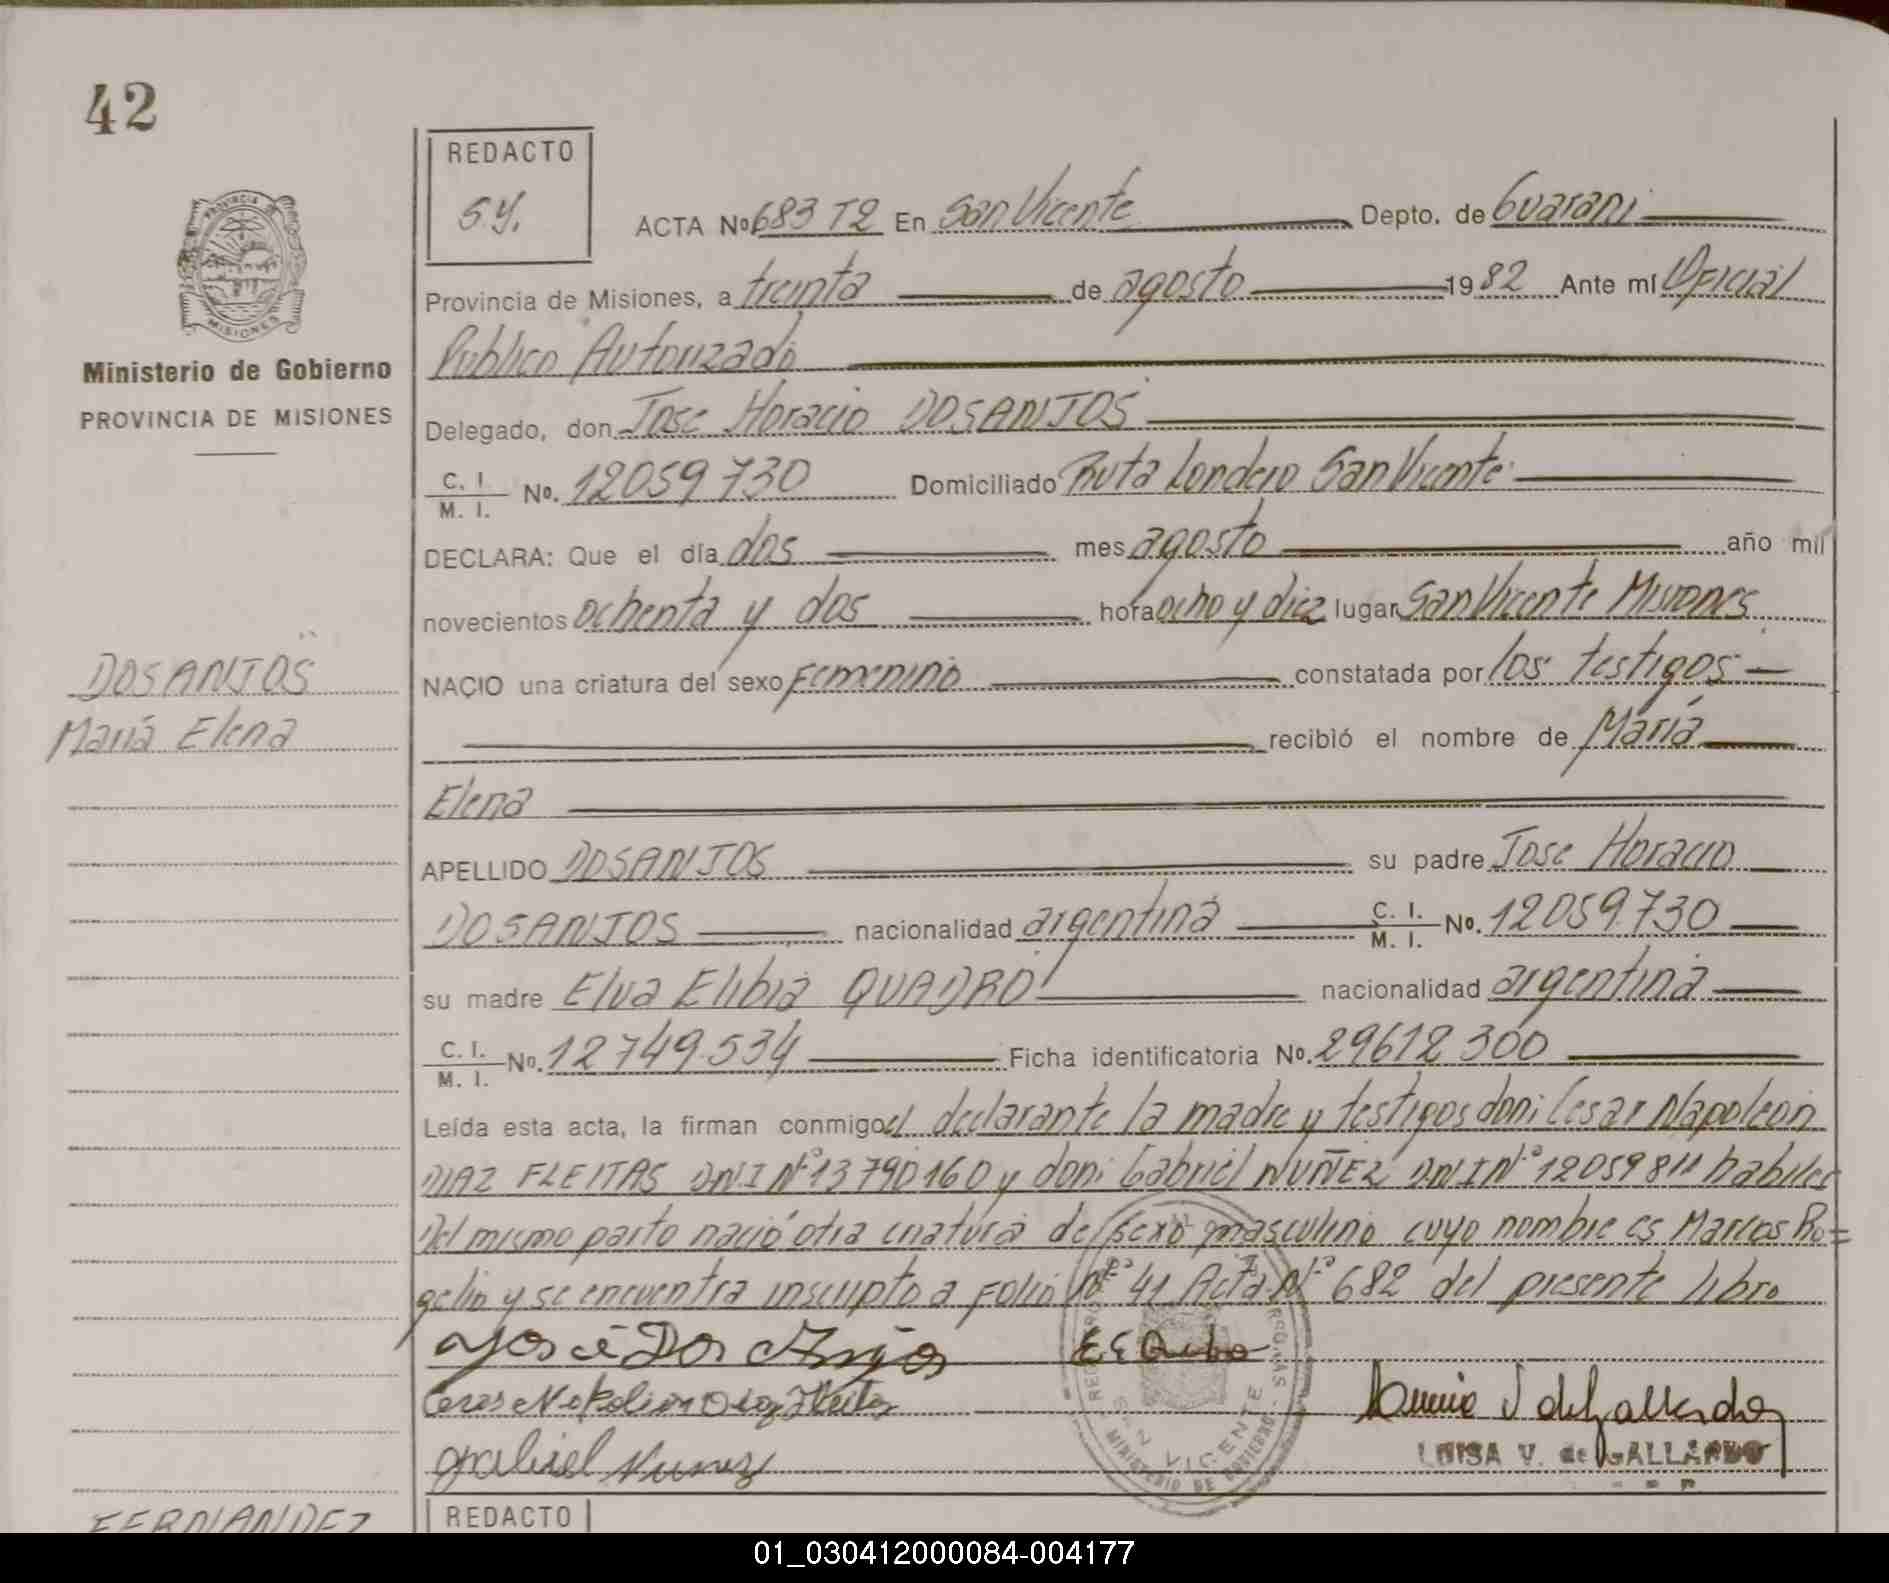 42
REDACTO
S.Y.
ACTA Nº 683 T2 En San Vicente Depto. de Guarani
Provincia de Misiones, a treinta de agosto 1982 Ante mí Oficial
Publico Autorizado
Delegado, don Jose Horacio DOSANJOS
C. I. / M. I. Nº. 12059730 Domiciliado Ruta Londero San Vicente
DECLARA: Que el día dos mes agosto año mil
novecientos ochenta y dos hora ocho y diez lugar San Vicente Misiones
NACIO una criatura del sexo Femenino constatada por los testigos
recibió el nombre de María
Elena
APELLIDO DOSANJOS su padre Jose Horacio
DOSANJOS nacionalidad argentina C. I. / M. I. Nº. 12059.730
su madre Elva Elibia QUADRO nacionalidad argentina
C. I. / M. I. Nº. 12749.534 Ficha identificatoria Nº. 29612300
Leída esta acta, la firman conmigo el declarante la madre y testigos don: Cesar Napoleon
DIAZ FLEITAS DNI Nº 13790160 y don: Gabriel NUÑEZ DNI Nº 12059811 habiles
Del mismo parto nació otra criatura de sexo masculino cuyo nombre es Marcos Ro=
gelio y se encuentra inscripto a Folio Nº 41 Acta Nº 682 del presente libro
José Dos Anjos
Gabriel Nunez
LUISA V. de GALLARDO
SAN VICENTE
MINISTERIO DE GOBIERNO
PROVINCIA DE
MISIONES
Ministerio de Gobierno
PROVINCIA DE MISIONES
DOSANJOS
María Elena
FERNANDEZ
REDACTO
01_030412000084-004177